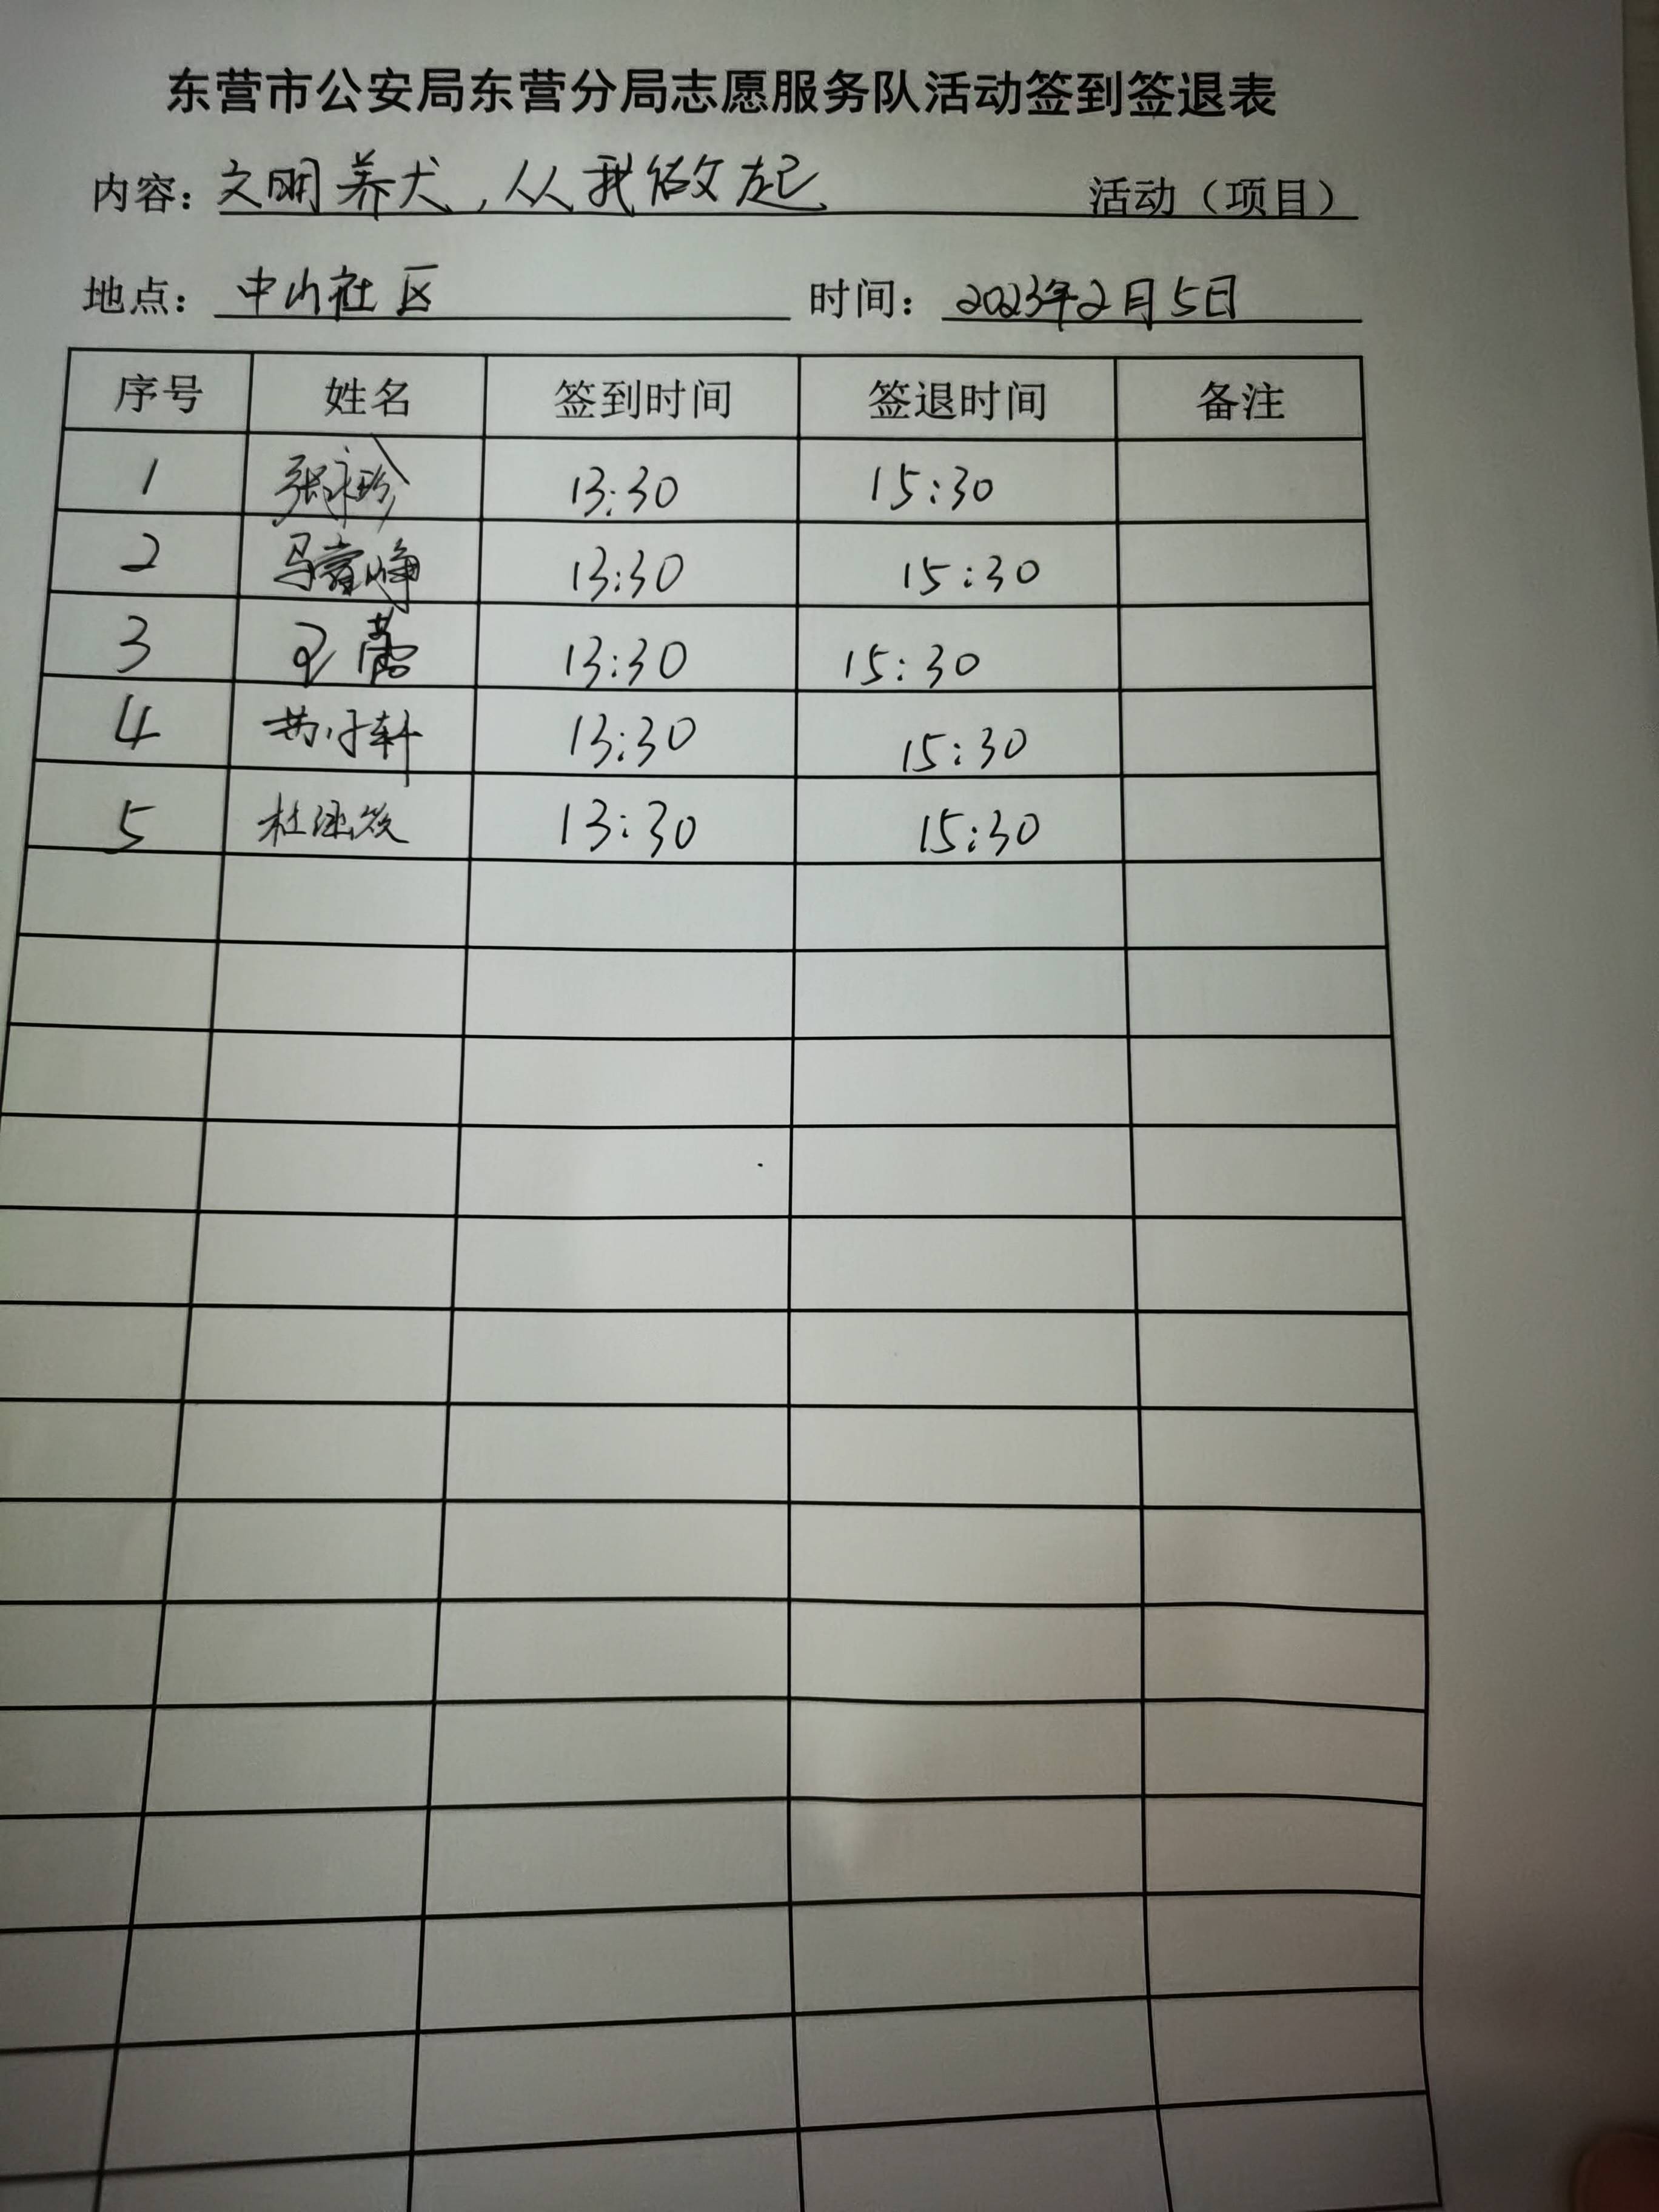 东营市公安局东营分局志愿服务队活动签到签退表
内容：文明养犬，从我做起 活动（项目）
地点：中山社区 时间：2023年2月5日
序号 姓名 签到时间 签退时间 备注
1 张永珍 13:30 15:30
2 13:30 15:30
3 王蕾 13:30 15:30
4 13:30 15:30
5 13:30 15:30